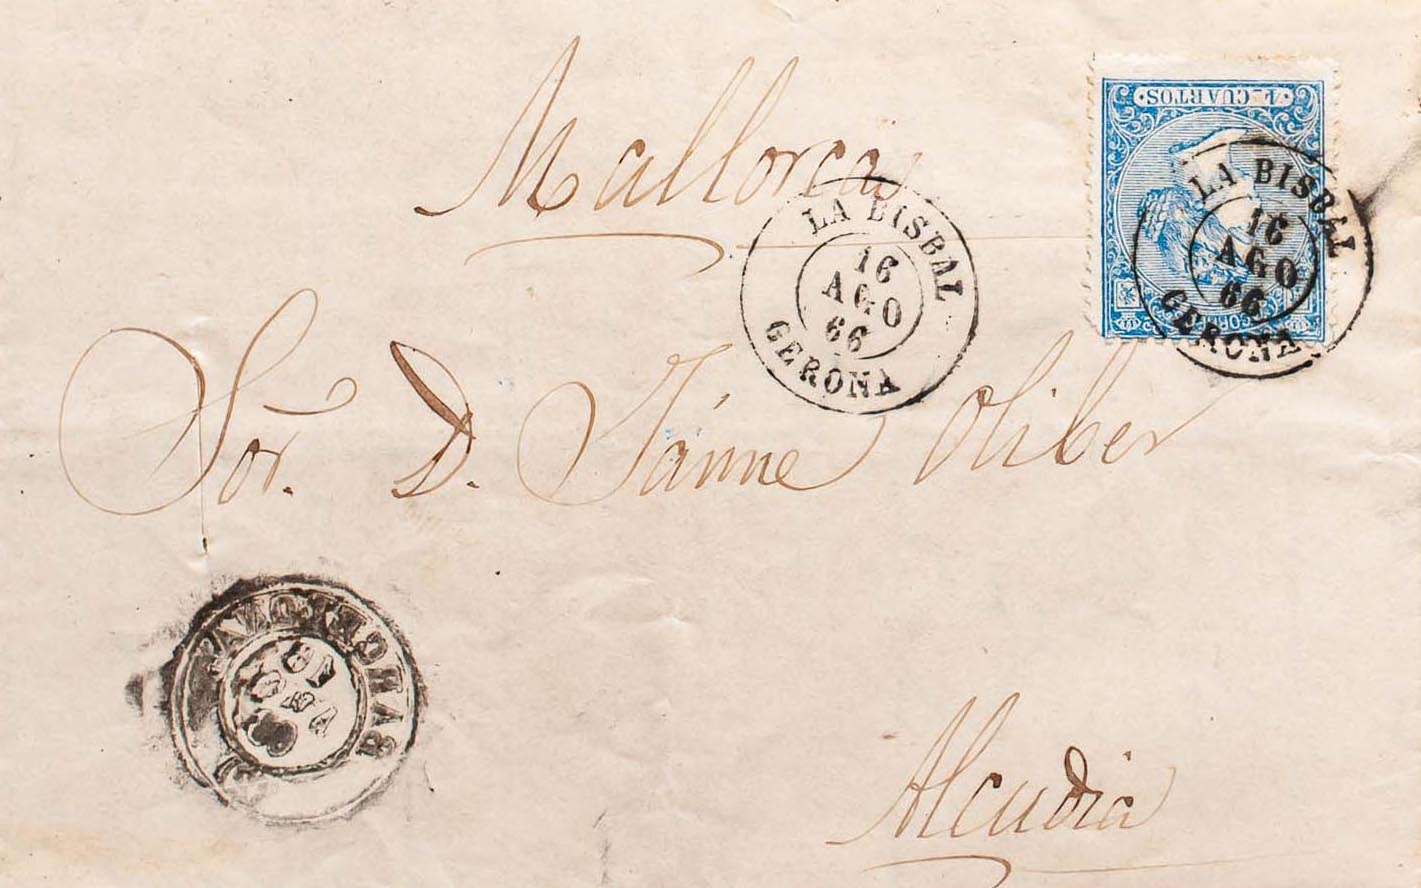 4 CUARTOS
CORREOS
Mallorca
LA BISBAL
16
AGO
66
GERONA
LA BISBAL
16
AGO
66
GERONA
Sor. D. Jáime Oliber
BARCELONA
Alcudia